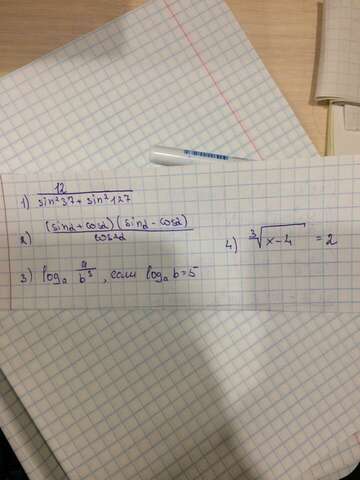 1) 12 / (sin²37 + sin²127)
2) (sinα + cosα)(sinα - cosα) / cos2α
3) logₐ a/b³, если logₐ b=5
4) ³√(x-4) = 2